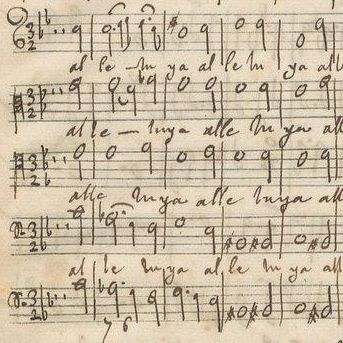 al le - lu ya al le lu ya all
alle - luya alle lu ya all
alle luya alle luya all
al le lu ya al le lu ya all
7 6